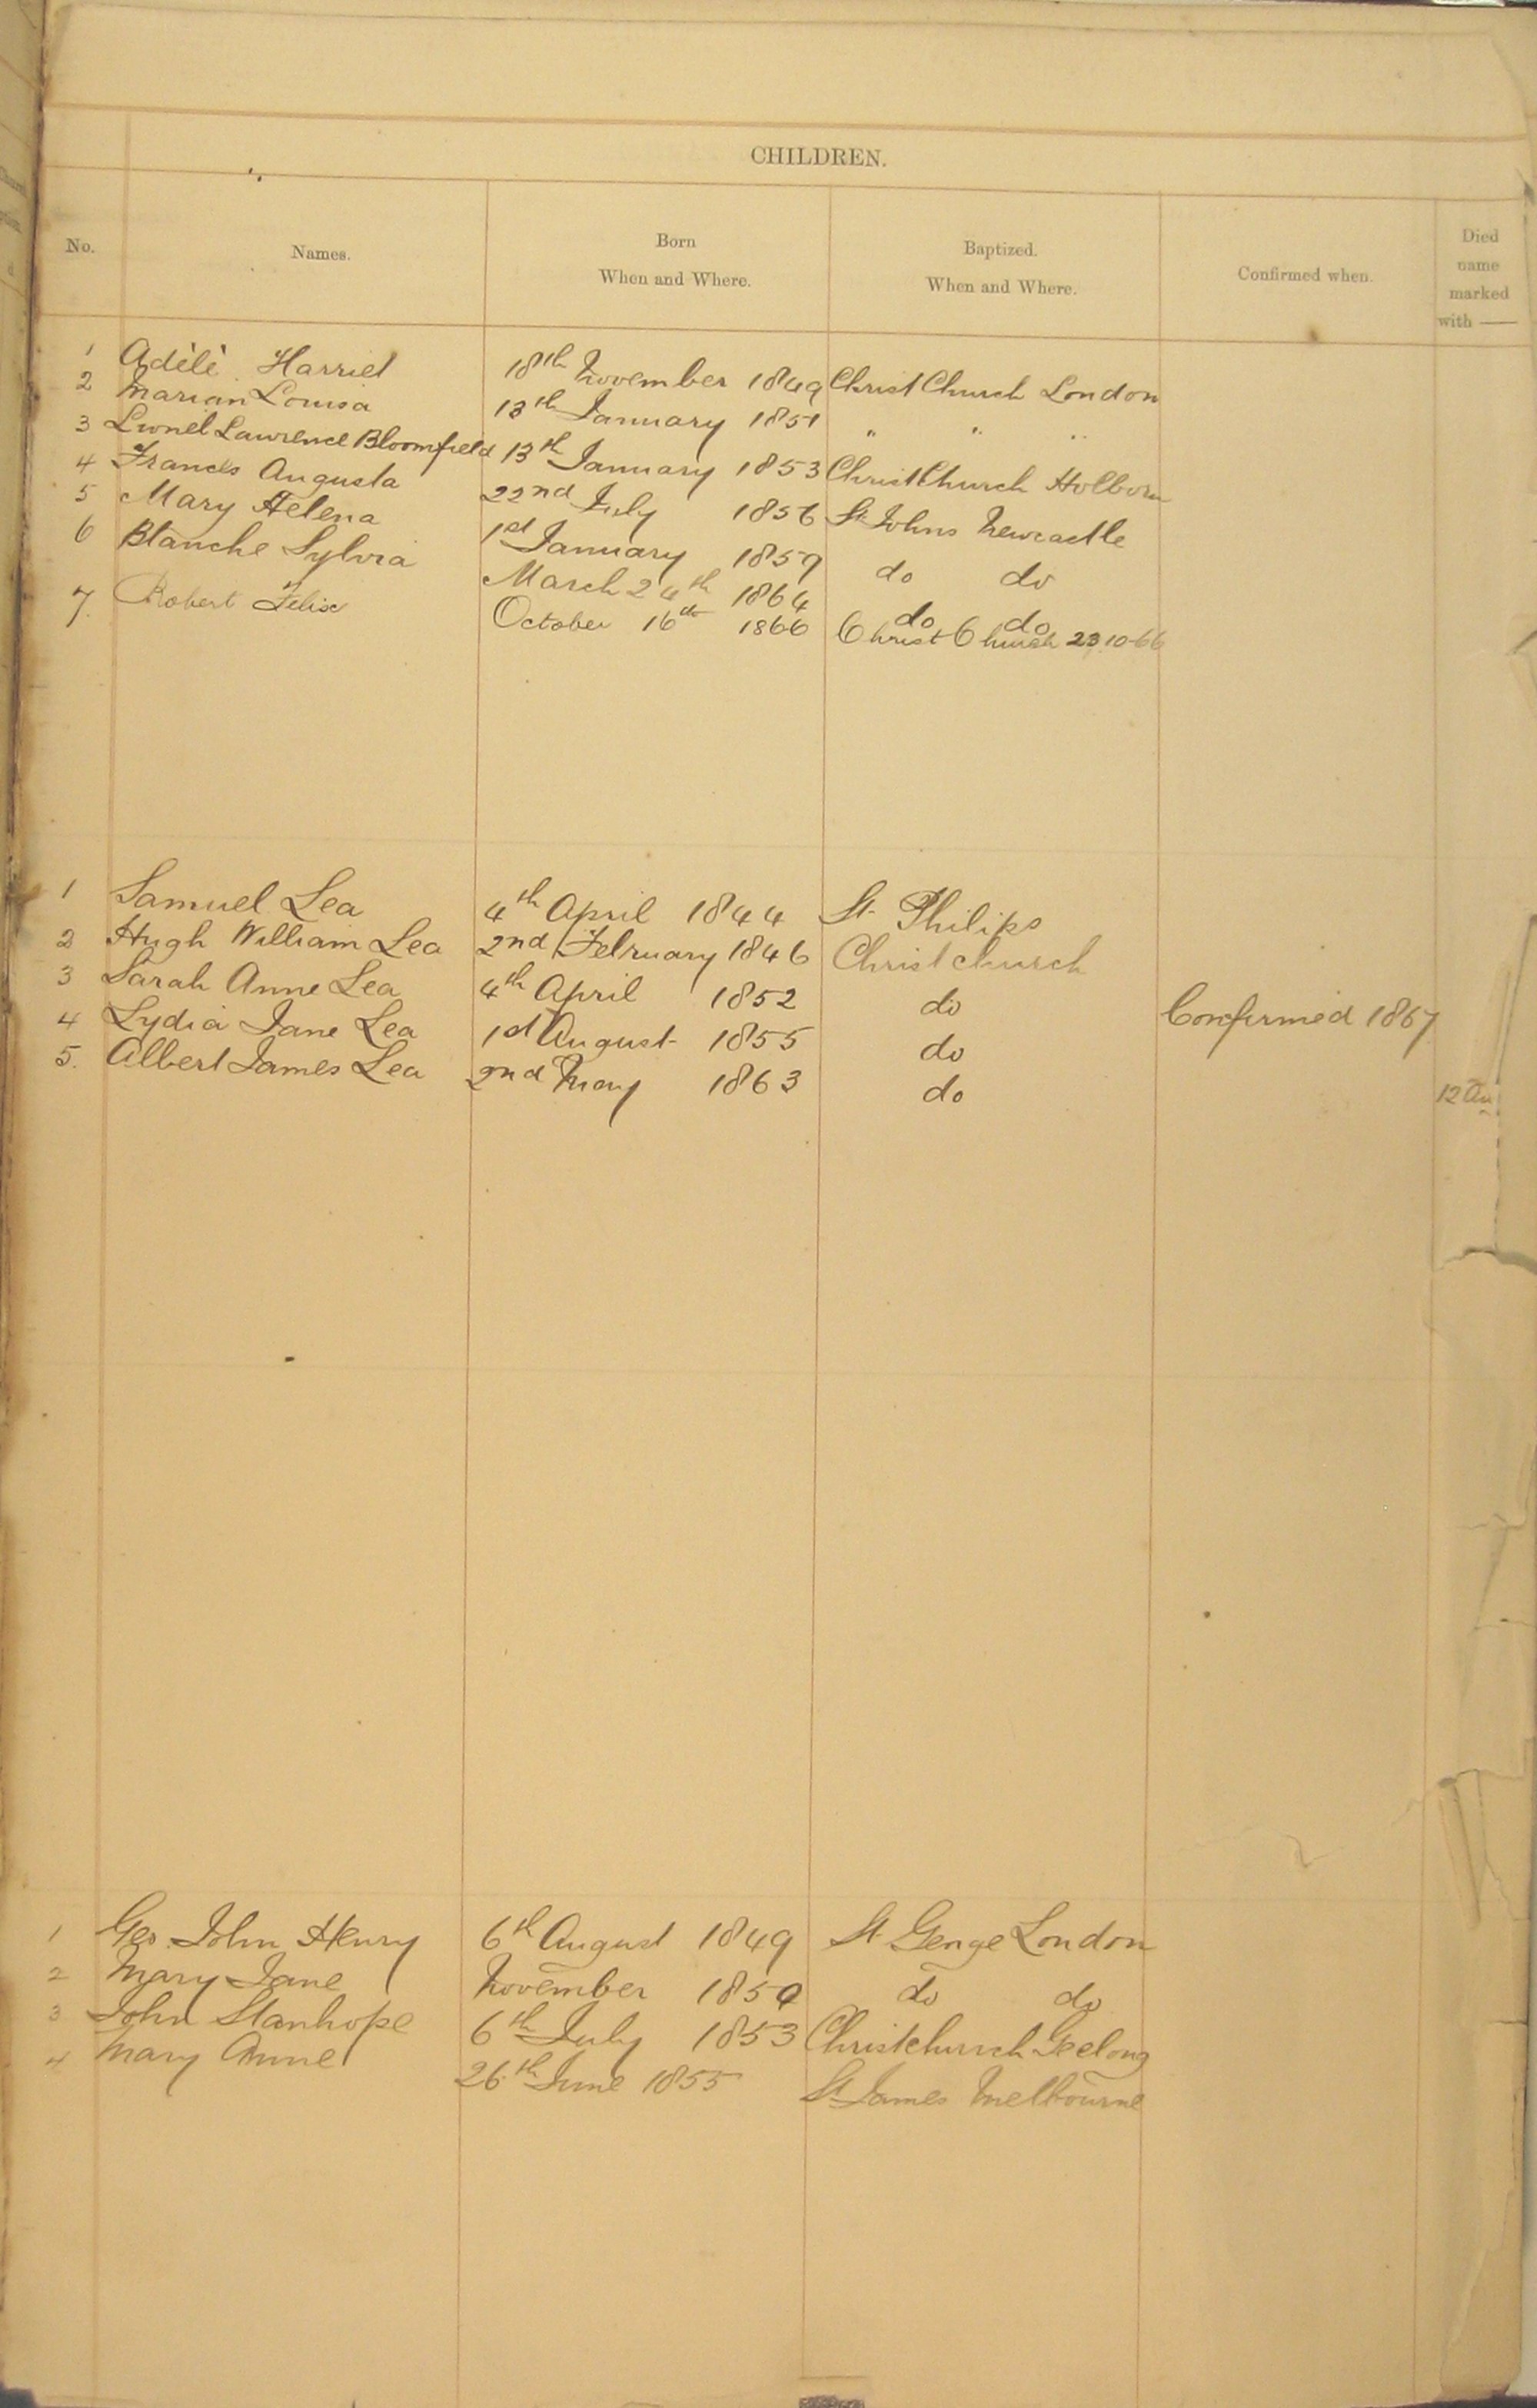 CHILDREN.
No. Names. Born When and Where. Baptized. When and Where. Confirmed when. Died name marked with —
1 Adèlè Harriet 18th November 1849 Christ Church London
2 Marian Louisa 13th January 1851 " " "
3 Lionel Lawrence Bloomfield 13th January 1853 Christ Church Holborn
4 Frances Augusta 22nd July 1856 St Johns Newcastle
5 Mary Helena 1st January 1859 do do
6 Blanche Sylvia March 24th 1864 do do
7. Robert Felix October 16th 1866 Christ Church 23.10-66
1 Samuel Lea 4th April 1844 St. Philips
2 Hugh William Lea 2nd February 1846 Christchurch
3 Sarah Anne Lea 4th April 1852 do Confirmed 1867
4 Lydia Jane Lea 1st August 1855 do
5. Albert James Lea 2nd May 1863 do 12 Au
1 Geo. John Henry 6th August 1849 St. George London
2 Mary Jane November 1850 do do
3 John Stanhope 6th July 1853 Christchurch Geelong
4 Mary Anne 26th June 1855 St James Melbourne